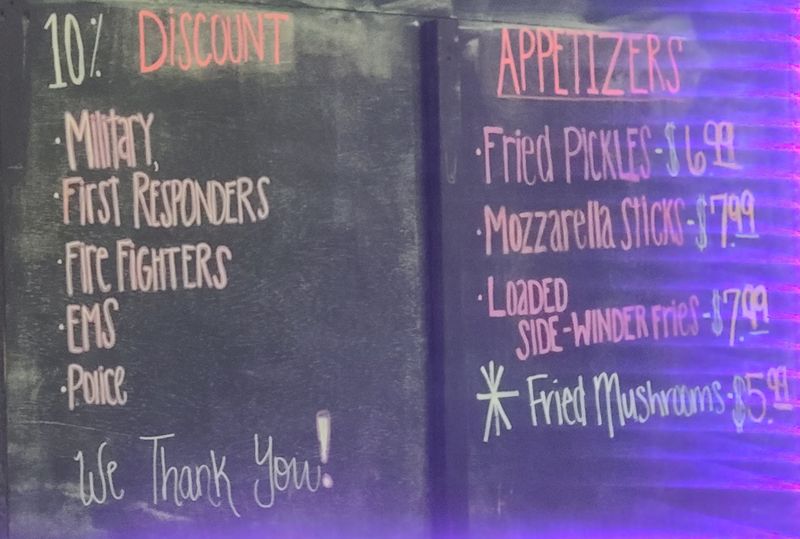 10% DISCOUNT
• Military,
• First Responders
• Fire Fighters
• EMS
• Police
We Thank You!
APPETIZERS
• Fried Pickles - $6.99
• Mozzarella Sticks - $7.99
• Loaded
Side-Winder Fries - $7.99
* Fried Mushrooms - $5.99